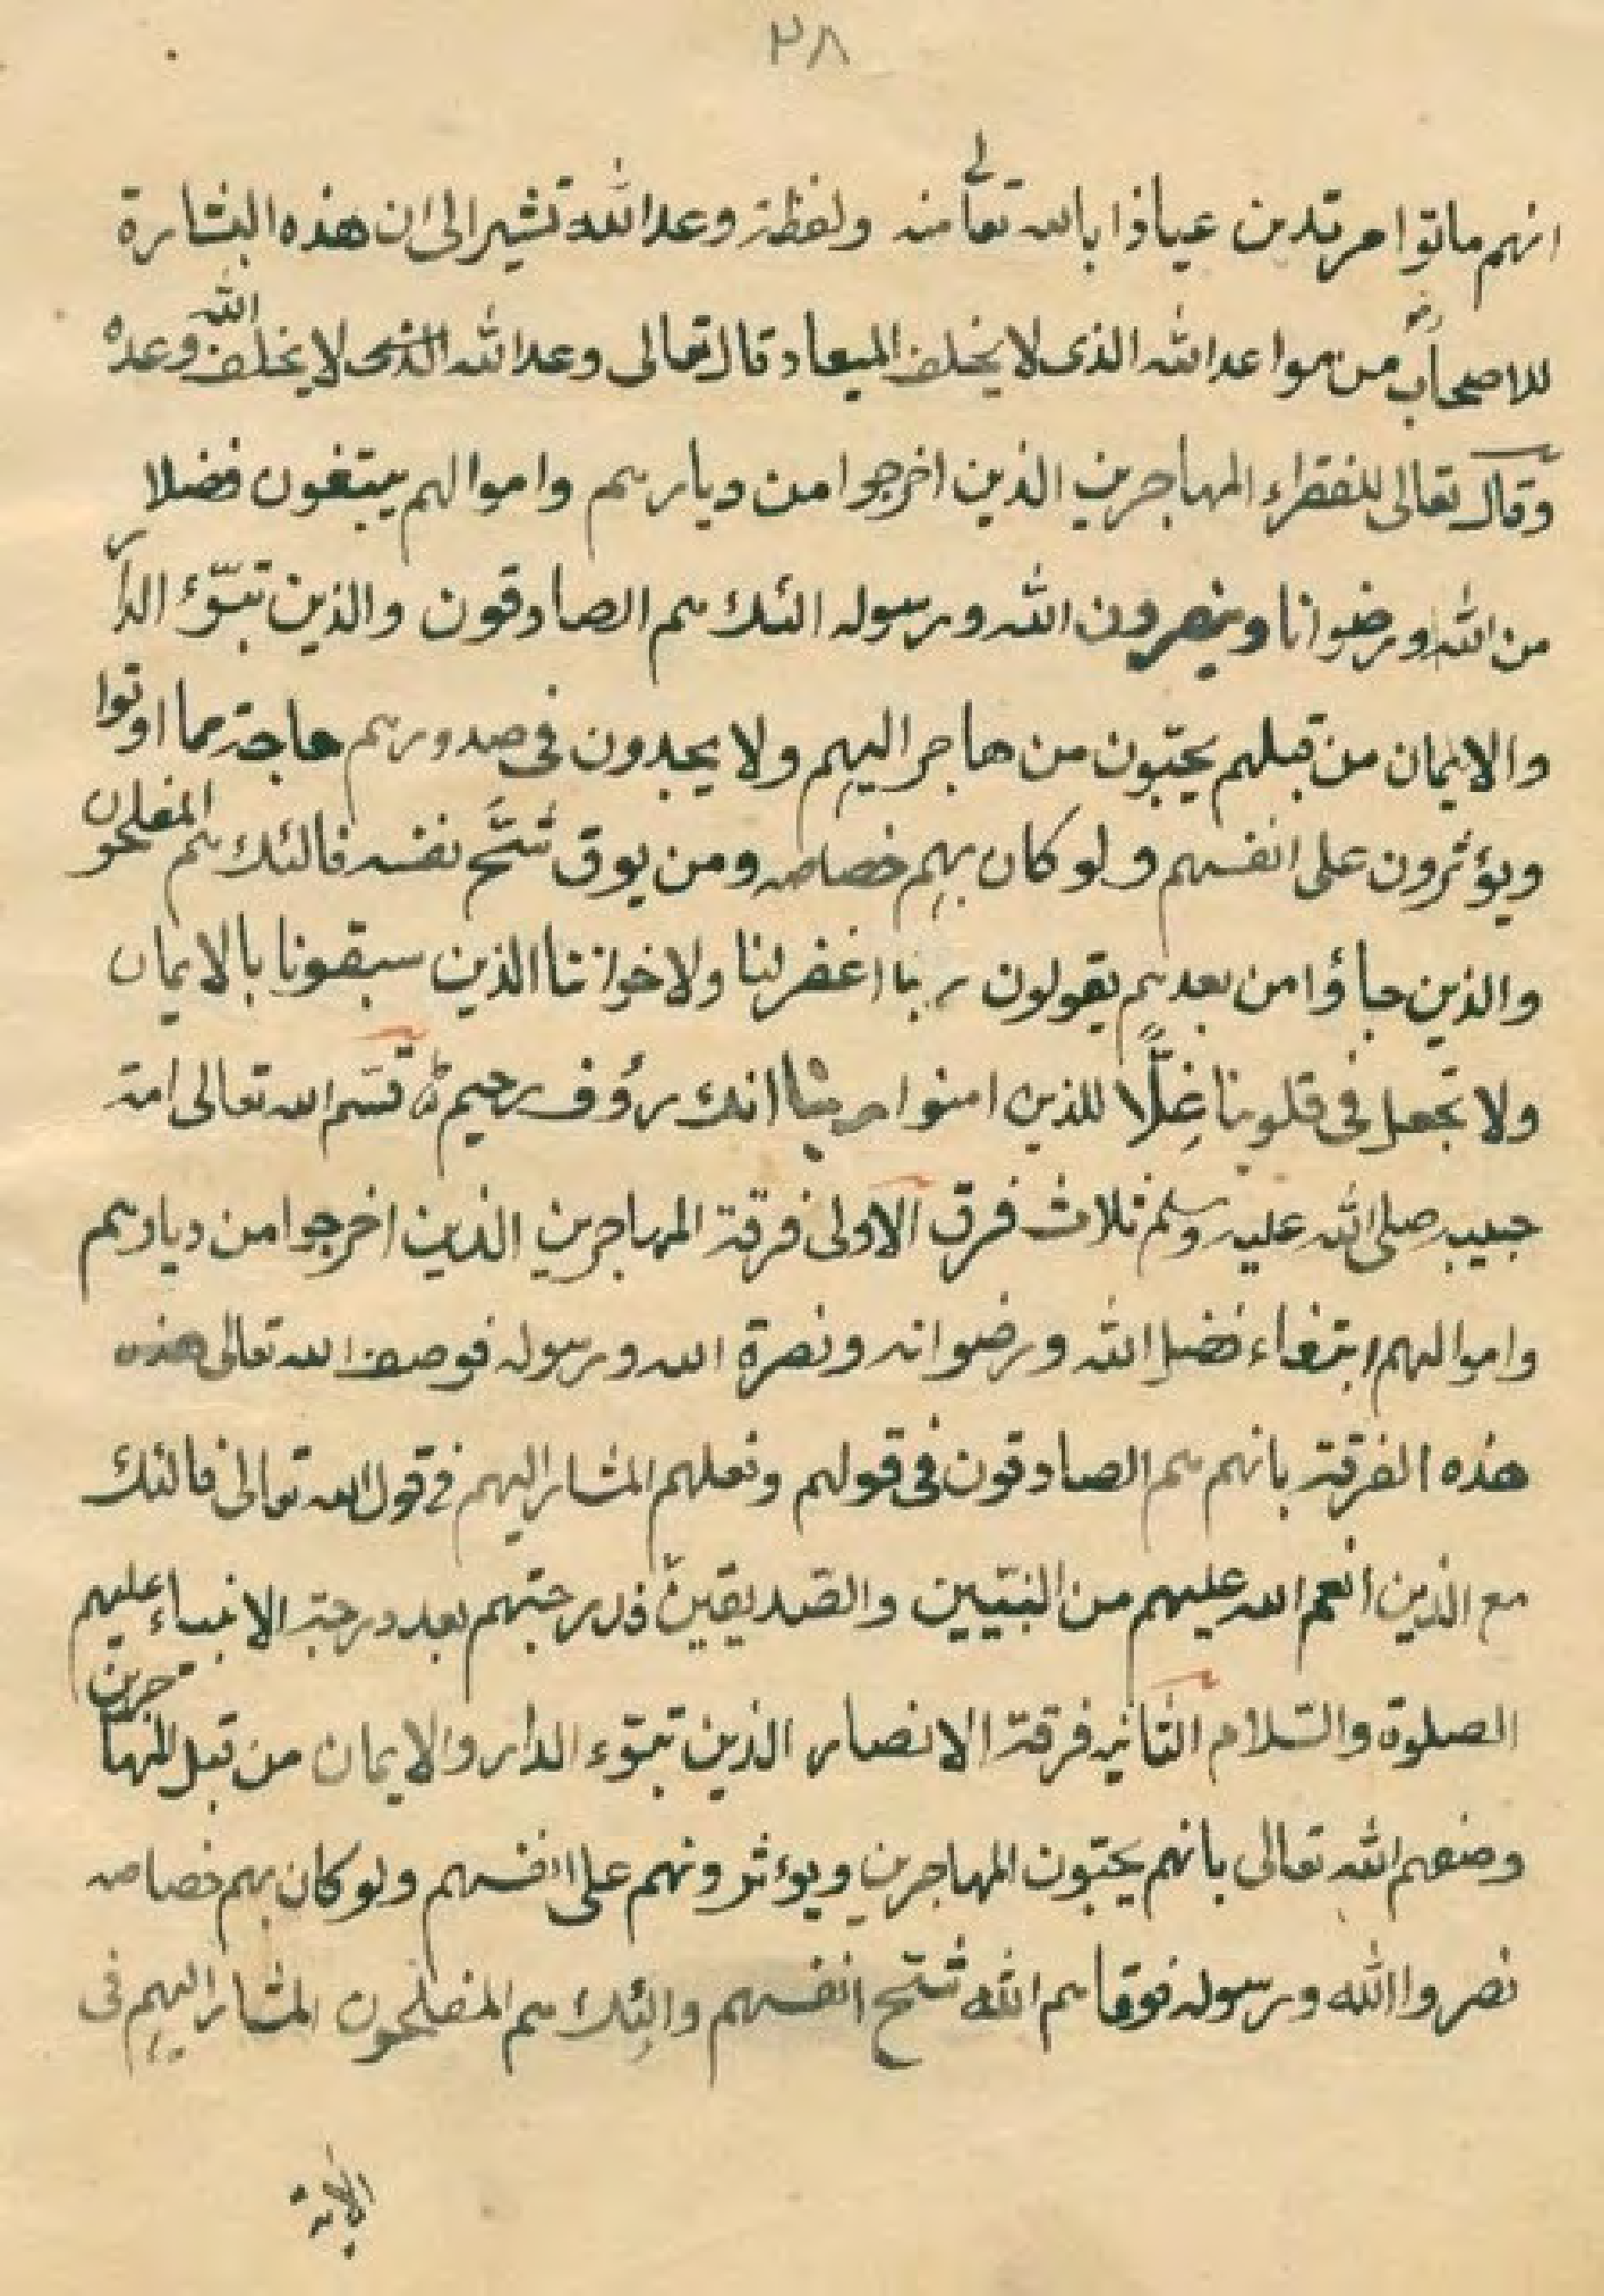 ٣٨
انهم ماتوا مرتدين عياذا بالله تعالى منه ولفظة وعد الله تشير الى ان هذه البشارة
للاصحاب رض من مواعد الله الذى لا يخلف الميعاد قال تعالى وعد الله لا يخلف الله وعده
وقال تعالى للفقراء المهاجرين الذين اخرجوا من ديارهم واموالهم يبتغون فضلا
من الله ورضوانا وينصرون الله ورسوله الئك هم الصادقون والذين تبوّئ الدار
والايمان من قبلهم يحبّون من هاجر اليهم ولا يجدون فى صدورهم حاجة مما اوتوا
ويؤثرون على انفسهم ولو كان بهم خصاصه ومن يوق شحّ نفسه فالئك هم المفلحون
والذين جاؤا من بعدهم يقولون ربنا اغفر لنا ولاخواننا الذين سبقونا بالايمان
ولا تجعل فى قلوبنا غِلًّا للذين امنوا ربنا انك رؤف رحيم قسّم الله تعالى امة
حبيبه صلى الله عليه وسلم ثلاث فرق الاولى فرقة المهاجرين الذين اخرجوا من ديارهم
واموالهم ابتغاء فضل الله ورضوانه ونصرة الله ورسوله فوصف الله تعالى هذه
هذه الفرقة بانهم هم الصادقون فى قولهم وفعلهم المشار اليهم فى قول الله تعالى فالئك
مع الذين انعم الله عليهم من النبّيين والصّديقين فدرجتهم بعد درجة الانبياء عليهم
الصلوة والسّلام الثانيه فرقة الانصار الذين تبوّء الدار والايمان من قبل المهاجرين
وصفهم الله تعالى بانهم يحبّون المهاجرين ويؤثرونهم على انفسهم ولو كان بهم خصاصه
نصروا الله ورسوله فوقاهم الله شحّ انفسهم والئك هم المفلحون المشار اليهم فى
الاية